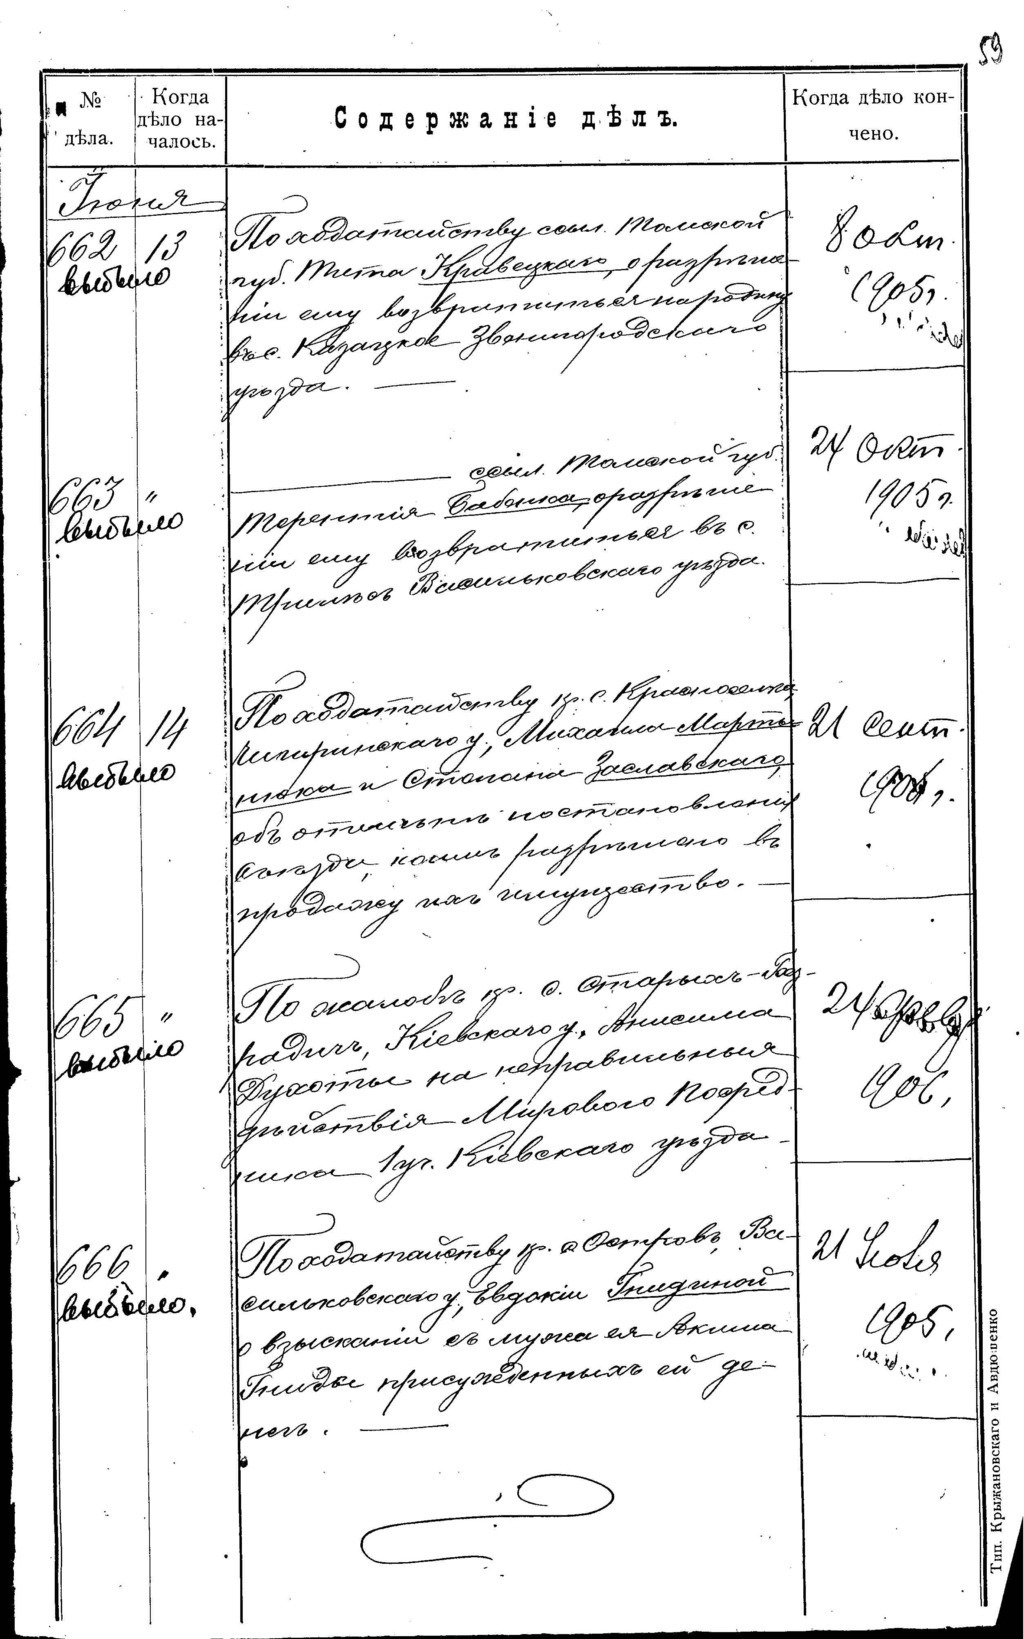 59
№ дѣла.
Когда дѣло на-
чалось.
Содержаніе дѣлъ.
Когда дѣло кон-
чено.
Іюня
662 13
выбыло
По ходатайству ссыл. Томской
губ. Тита Кравецкаго, о разрѣше-
ніи ему возвратиться на родину
въ с. Казацкое Звенигородскаго
уѣзда. —
8 Окт.
1905 г.
663 "
выбыло
— ссыл. Томской губ.
Терентія Бабенка, о разрѣше-
ніи ему возвратиться въ с.
Трилѣсъ Васильковскаго уѣзда.
24 Окт.
1905 г.
664 14
выбыло
По ходатайству кр. с. Красноселки,
Чигиринскаго у., Михаила Марты-
нюка и Степана Заславскаго,
объ отмѣнѣ постановленія
Съѣзда, коимъ разрѣшено въ
продажу ихъ имущество. —
21 Сент.
190 г.
665 "
выбыло
По жалобѣ кр. с. Старыхъ-Без-
радичъ, Кіевскаго у., Анисима
Духоты на неправильныя
дѣйствія Мирового Посред-
ника 1 уч. Кіевскаго уѣзда
24
1906,
666 "
выбыло.
По ходатайству кр. с. Острова, Ва-
сильковскаго у., Евдокіи Гнидиной
о взысканіи съ мужа ея Акима
Гниды присужденныхъ ей де-
негъ. —
21 Ноября
1905,
Тип. Крыжановскаго и Авдюшенко